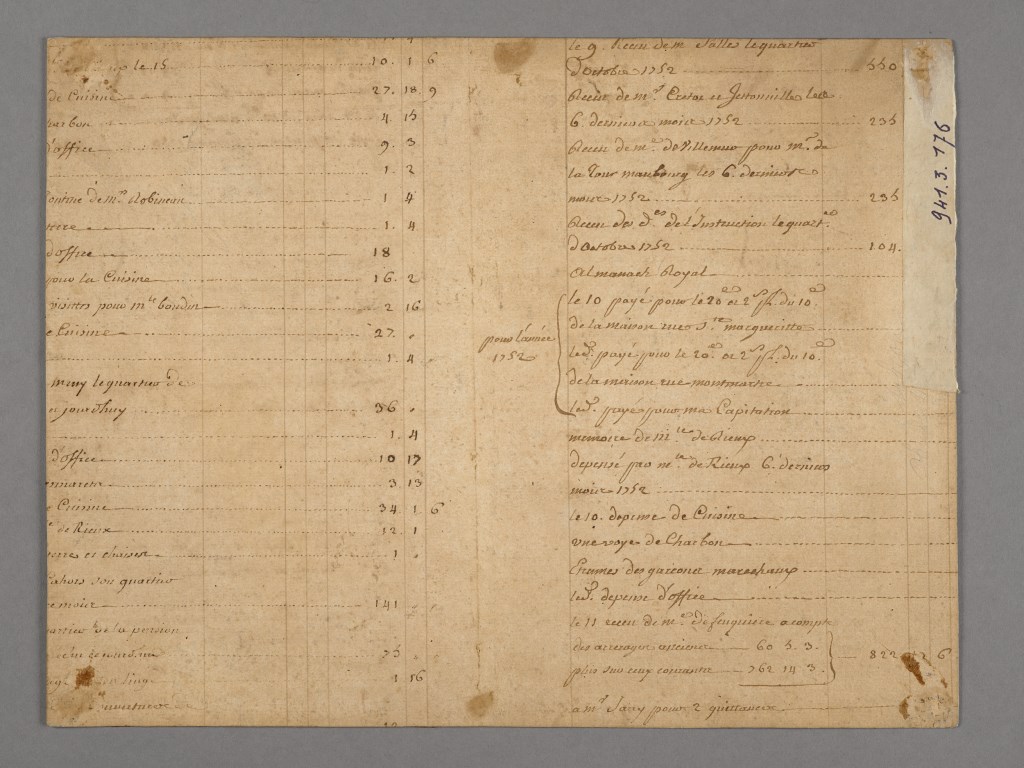 le 15 10. 1 6
de Cuisine 27. 18 9
4. 15
d'office 9. 3
1. 2
de Mr Robineau 1. 4
1. 4
d'office 18
pour la Cuisine 16. 2
visittes pour mlle boudin 2 16
Cuisine 27. .
1. 4
le quartier de
jourdhuy 36 .
1. 4
d'office 10 17
3 13
Cuisine 34. 1 6
de Rieux 12. 1
et chaises 1 .
son quartier
mois 141 . .
de la portion
75
linge 1 16
pour l'année
1752
le 9. Receu de mr Salles le quartier
d'octobre 1752 550
Receu de mr et Jettonville les
6. derniers mois 1752 235
Receu de mr de Villemur pour mr de
la Tour maubourg les 6. derniers
mois 1752 235
Receu des de l'Instruction le quartr
d'octobre 1752 104.
Almanach Royal
le 10 payé pour le 20e et 2s pl. du 10e
de la maison rue Ste macqueritte
led. payé pour le 20e et 2s pl. du 10e
de la maison rue montmartre
led. payé pour ma Capitation
memoire de mlle de Rieux
depensé par mlle de Rieux 6. derniers
mois 1752
le 10. depense de Cuisine
une voye de Charbon
Etrennes des garçons marechaux
led. depense d'office
le 11 receu de mr defeuquiere acompte
des arrerages anciens 60 3. 3.
plus sur ceux courants 762 14 3. 822 6
a mr Savy pour 2 quittances
941.3.176